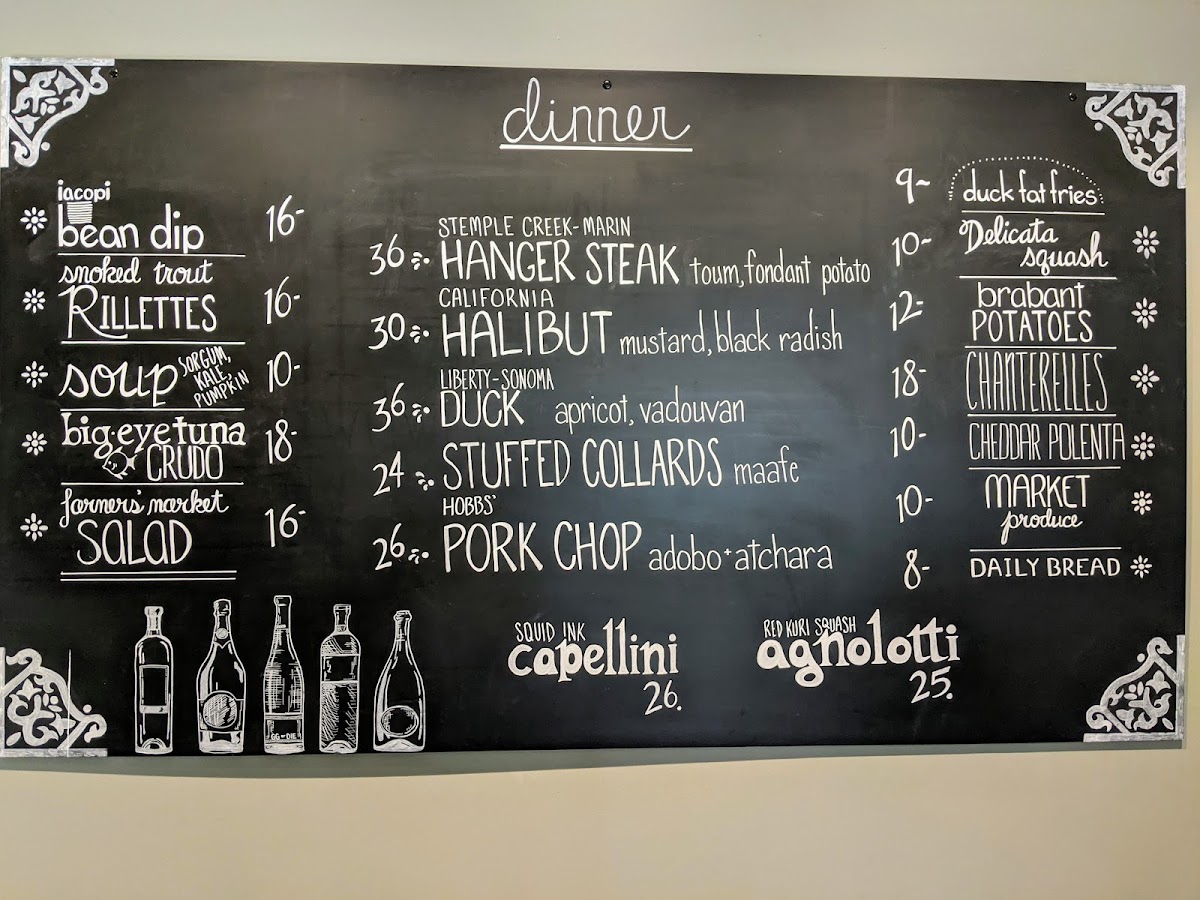 dinner
iacopi
bean dip 16-
smoked trout
RILLETTES 16-
soup SORGUM,
KALE,
PUMPKIN 10-
big-eye tuna
CRUDO 18-
farmers' market
SALAD 16-
STEMPLE CREEK-MARIN
36 HANGER STEAK toum, fondant potato
CALIFORNIA
30 HALIBUT mustard, black radish
LIBERTY-SONOMA
36 DUCK apricot, vadouvan
24 STUFFED COLLARDS maafe
HOBBS'
26 PORK CHOP adobo + atchara
9~ duck fat fries
10- Delicata
squash
12- brabant
POTATOES
18- CHANTERELLES
10- CHEDDAR POLENTA
10- MARKET
produce
8- DAILY BREAD
SQUID INK
capellini
26.
RED KURI SQUASH
agnolotti
25.